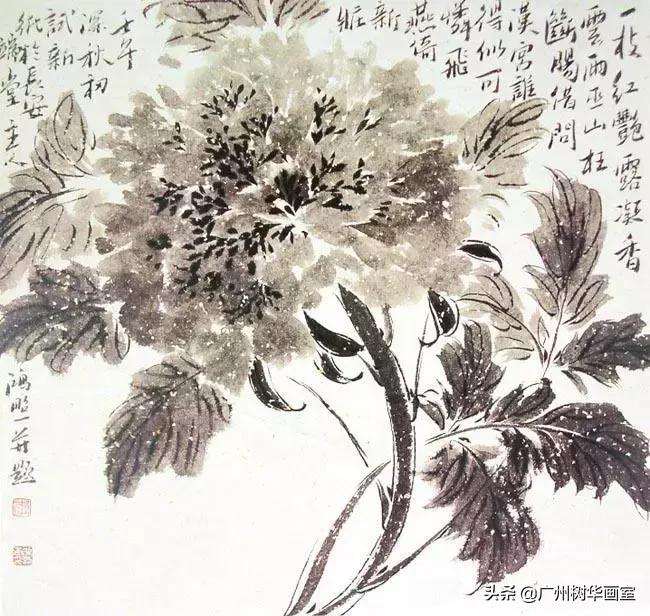 一枝紅艷露凝香
雲雨巫山枉
斷腸借問
漢宮誰
得似可
憐飛
燕倚
新
粧
壬午
深秋初
試新
紙於長安
堂主人
鴻照并題
头条 @广州树华画室